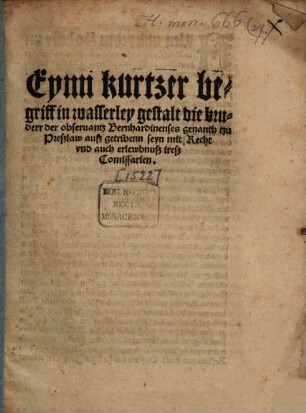 H. mon. 666
Eynn kurtzer be⸗
griff in wasserley gestalt die bru⸗
derr der obseruantz Bernhardinenses genanth tzu
Preßlaw auß getribenn seyn mit Recht
vnd auch erlewbnuß ireß
Comissarien.
[1522]
BIBLIO
REGIA
MONACENSIS